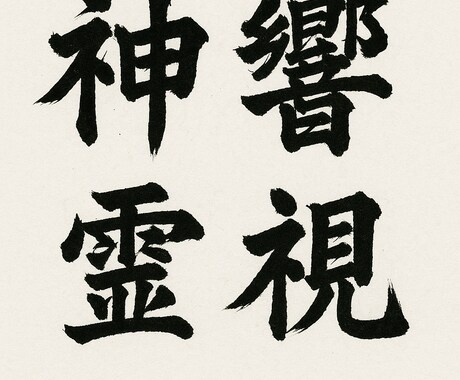 響視
神霊